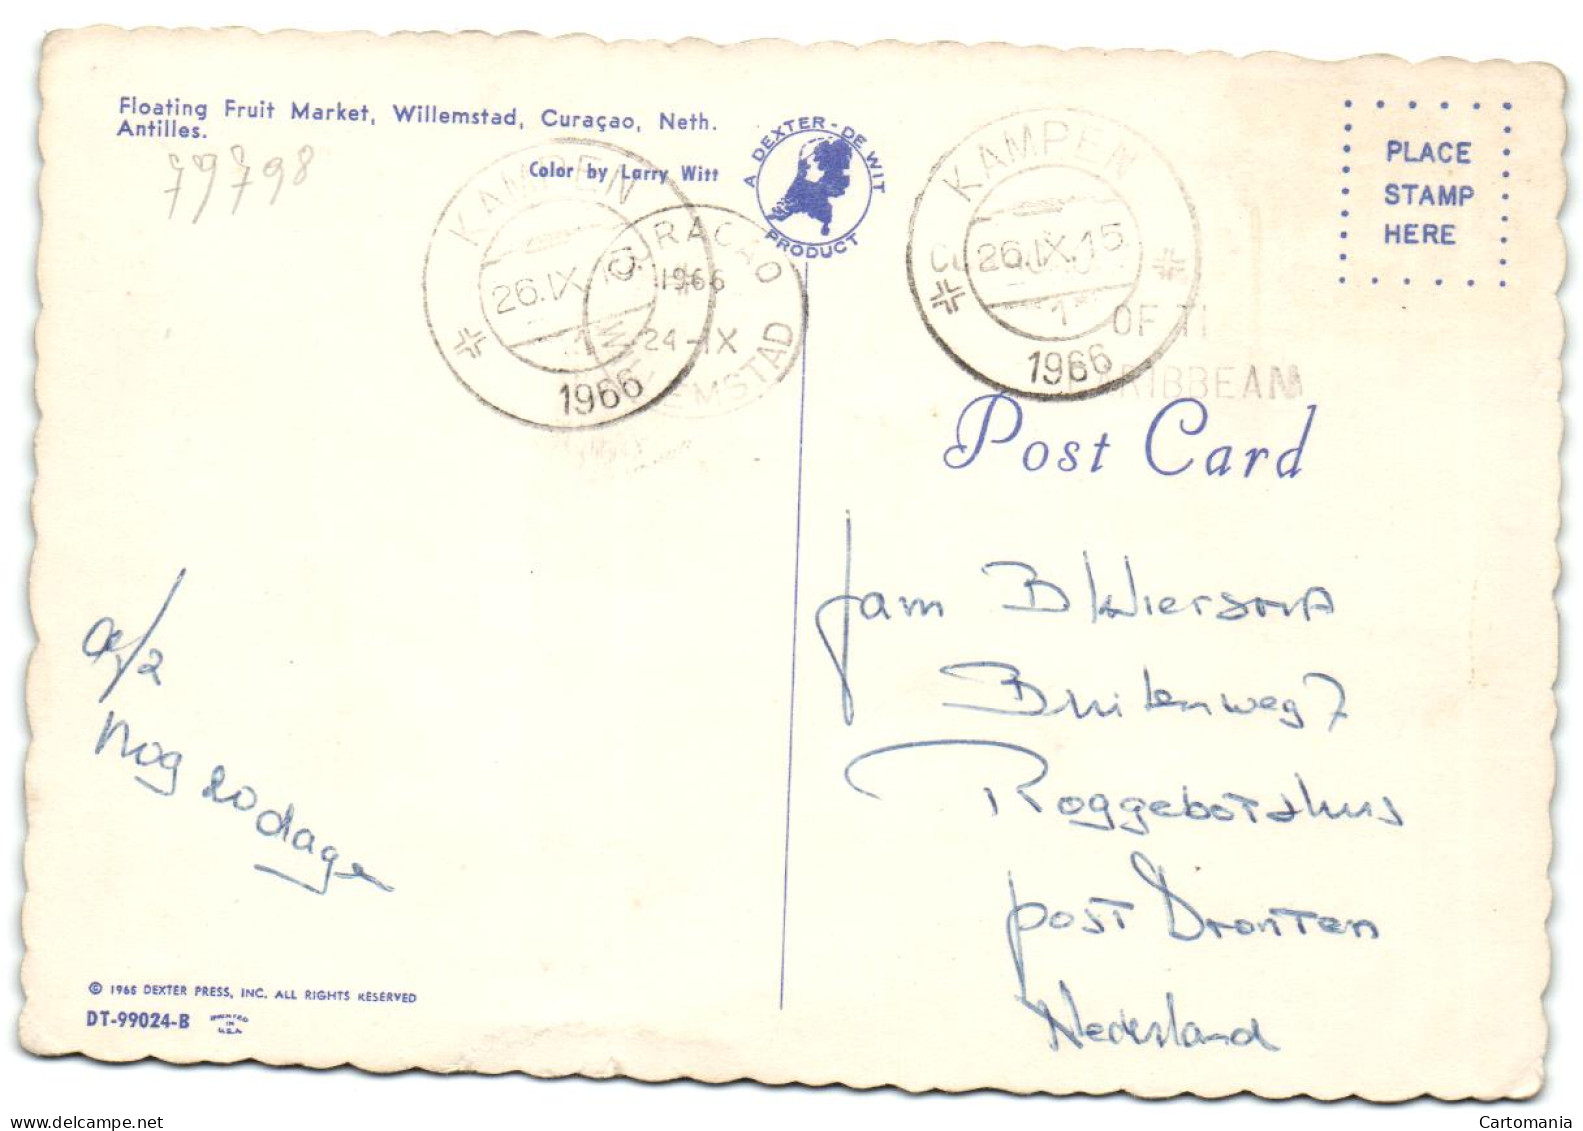 Floating Fruit Market, Willemstad, Curaçao, Neth.
Antilles.
79798
Color by Larry Witt
A DEXTER-DE WIT
PRODUCT
KAMPEN
26.IX.15
1
1966
CURAÇAO
1966
24-IX
WILLEMSTAD
KAMPEN
26.IX.15
1
1966
OF
CARIBBEAN
PLACE
STAMP
HERE
Post Card
fam B Wiersma
Buitenweg 7
Roggebotsluis
post Dronten
Nederland
a/z
nog 20 dage
© 1965 DEXTER PRESS, INC. ALL RIGHTS RESERVED
DT-99024-B
PRINTED
IN
U.S.A.
Cartomania